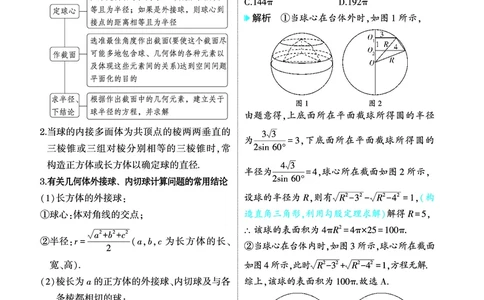 定球心
等且为半径；如果是外接球，则球心到
接点的距离相等且为半径
作截面
选准最佳角度作出截面(要使这个截面尽
可能多地包含球、几何体的各种元素以
及体现这些元素间的关系)达到空间问题
平面化的目的
求半径、
下结论
根据作出截面中的几何元素，建立关于
球半径的方程，并求解
2.当球的内接多面体为共顶点的棱两两垂直的
三棱锥或三组对棱分别相等的三棱锥时，常
构造正方体或长方体以确定球的直径.
3.有关几何体外接球、内切球计算问题的常用结论
(1)长方体的外接球：
①球心：体对角线的交点；
②半径：r=√(a²+b²+c²)/2 (a,b,c 为长方体的长、
宽、高).
(2)棱长为 a 的正方体的外接球、内切球及与各
条棱都相切的球：
C.144π D.192π
解析 ①当球心在台体外时，如图 1 所示，
O₁ 3
1 R 4
O₂
O R
图 1 图 2
由题意得，上底面所在平面截球所得圆的半径
为 3√3/(2sin 60°)=3，下底面所在平面截球所得圆的
半径为 4√3/(2sin 60°)=4，球心所在截面如图 2 所示，
设球的半径为 R，则有 √(R²-3²)-√(R²-4²)=1，(构
造直角三角形，利用勾股定理求解)解得 R=5，
∴ 该球的表面积为 4πR²=4π×25=100π.
②当球心在台体内时，如图 3 所示，球心所在截面
如图 4 所示，此时 √(R²-3²)+√(R²-4²)=1，方程无解.
综上，该球的表面积为 100π.故选 A.